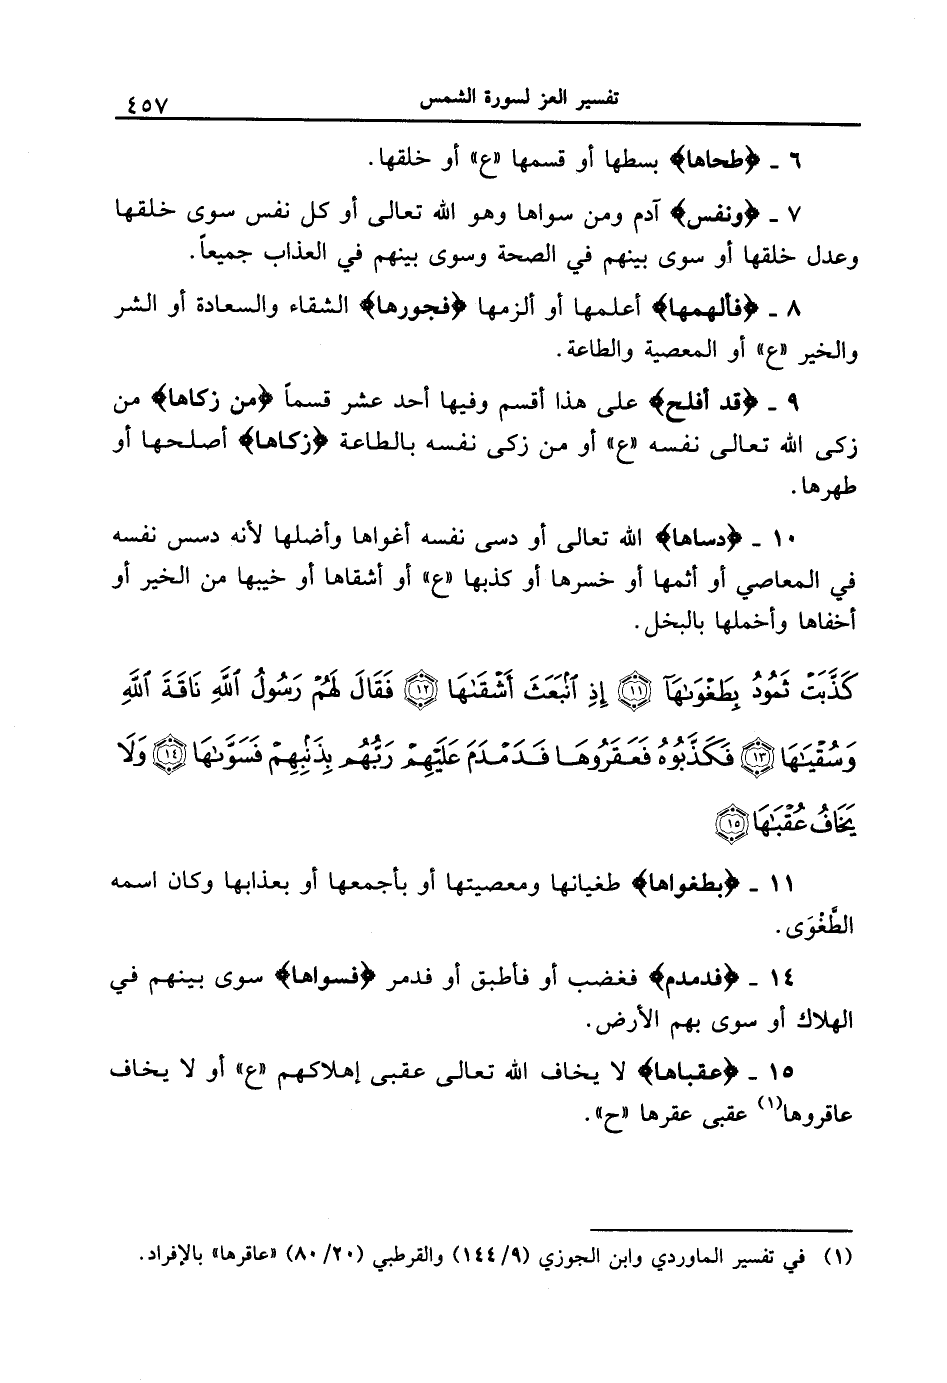 تفسير العز لسورة الشمس ٤٥٧
٦ ـ ﴿طحاها﴾ بسطها أو قسمها «ع» أو خلقها.
٧ ـ ﴿ونفس﴾ آدم ومن سواها وهو الله تعالى أو كل نفس سوى خلقها
وعدل خلقها أو سوى بينهم في الصحة وسوى بينهم في العذاب جميعاً.
٨ ـ ﴿فألهمها﴾ أعلمها أو ألزمها ﴿فجورها﴾ الشقاء والسعادة أو الشر
والخير «ع» أو المعصية والطاعة.
٩ ـ ﴿قد أفلح﴾ على هذا أقسم وفيها أحد عشر قسماً ﴿من زكاها﴾ من
زكى الله تعالى نفسه «ع» أو من زكى نفسه بالطاعة ﴿زكاها﴾ أصلحها أو
طهرها.
١٠ ـ ﴿دساها﴾ الله تعالى أو دسى نفسه أغواها وأضلها لأنه دسس نفسه
في المعاصي أو أثمها أو خسرها أو كذبها «ع» أو أشقاها أو خيبها من الخير أو
أخفاها وأخملها بالبخل.
كَذَّبَتْ ثَمُودُ بِطَغْوَىٰهَآ ١١ إِذِ ٱنۢبَعَثَ أَشْقَىٰهَا ١٢ فَقَالَ لَهُمْ رَسُولُ ٱللَّهِ نَاقَةَ ٱللَّهِ
وَسُقْيَـٰهَا ١٣ فَكَذَّبُوهُ فَعَقَرُوهَا فَدَمْدَمَ عَلَيْهِمْ رَبُّهُم بِذَنۢبِهِمْ فَسَوَّىٰهَا ١٤ وَلَا
يَخَافُ عُقْبَـٰهَا ١٥
١١ ـ ﴿بطغواها﴾ طغيانها ومعصيتها أو بأجمعها أو بعذابها وكان اسمه
الطَّغْوَى.
١٤ ـ ﴿فدمدم﴾ فغضب أو فأطبق أو فدمر ﴿فسواها﴾ سوى بينهم في
الهلاك أو سوى بهم الأرض.
١٥ ـ ﴿عقباها﴾ لا يخاف الله تعالى عقبى إهلاكهم «ع» أو لا يخاف
عاقروها(١) عقبى عقرها «ح».
(١) في تفسير الماوردي وابن الجوزي (٩/ ١٤٤) والقرطبي (٢٠/ ٨٠) «عاقرها» بالإفراد.